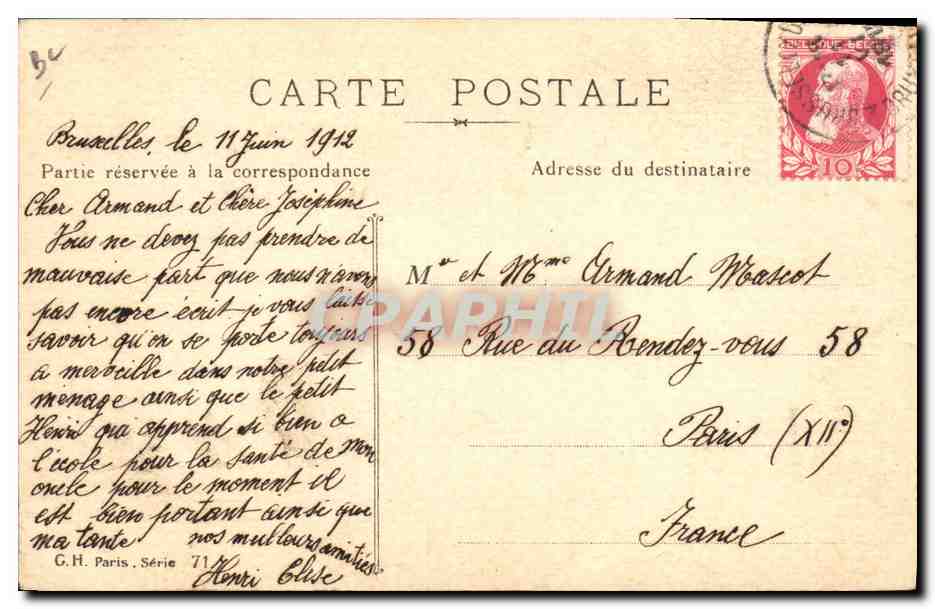 CARTE POSTALE
Bruxelles, le 11 Juin 1912
Partie réservée à la correspondance
Cher Armand et Chère Joséphine
Vous ne devez pas prendre de
mauvaise part que nous n'avons
pas encore écrit je vous laisse
savoir qu'on se porte toujours
a merveille dans notre petit
menage ainsi que le petit
Henri qui apprend si bien a
l'école pour la santé de mon
oncle pour le moment il
est bien portant ainsi que
ma tante nos meilleurs amitiés
Henri Elise
G. H. Paris. Série 71
Adresse du destinataire
Mr et Mme Armand Mascot
58 Rue du Rendez-vous 58
Paris (XIIe)
France
10
CPAPHIL